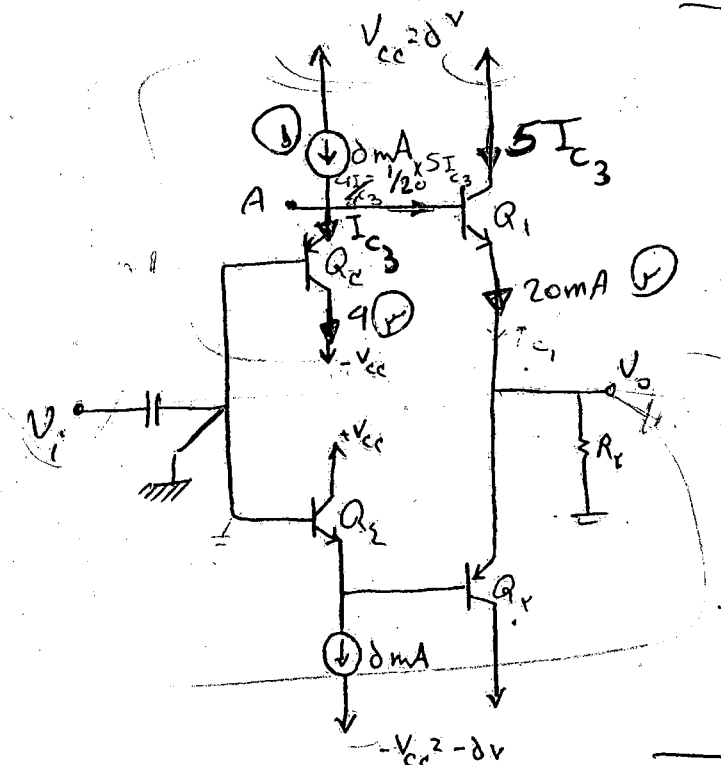 Vcc = ۵ V
۱
۵ mA
5Ic3
1/20 × 5Ic3
A
Ic3
Q1
Q۳
20mA ۲
۳
-Vcc
Ic1
Vo
Vi
+Vcc
Q۴
Q۲
۵ mA
-Vcc = -۵V